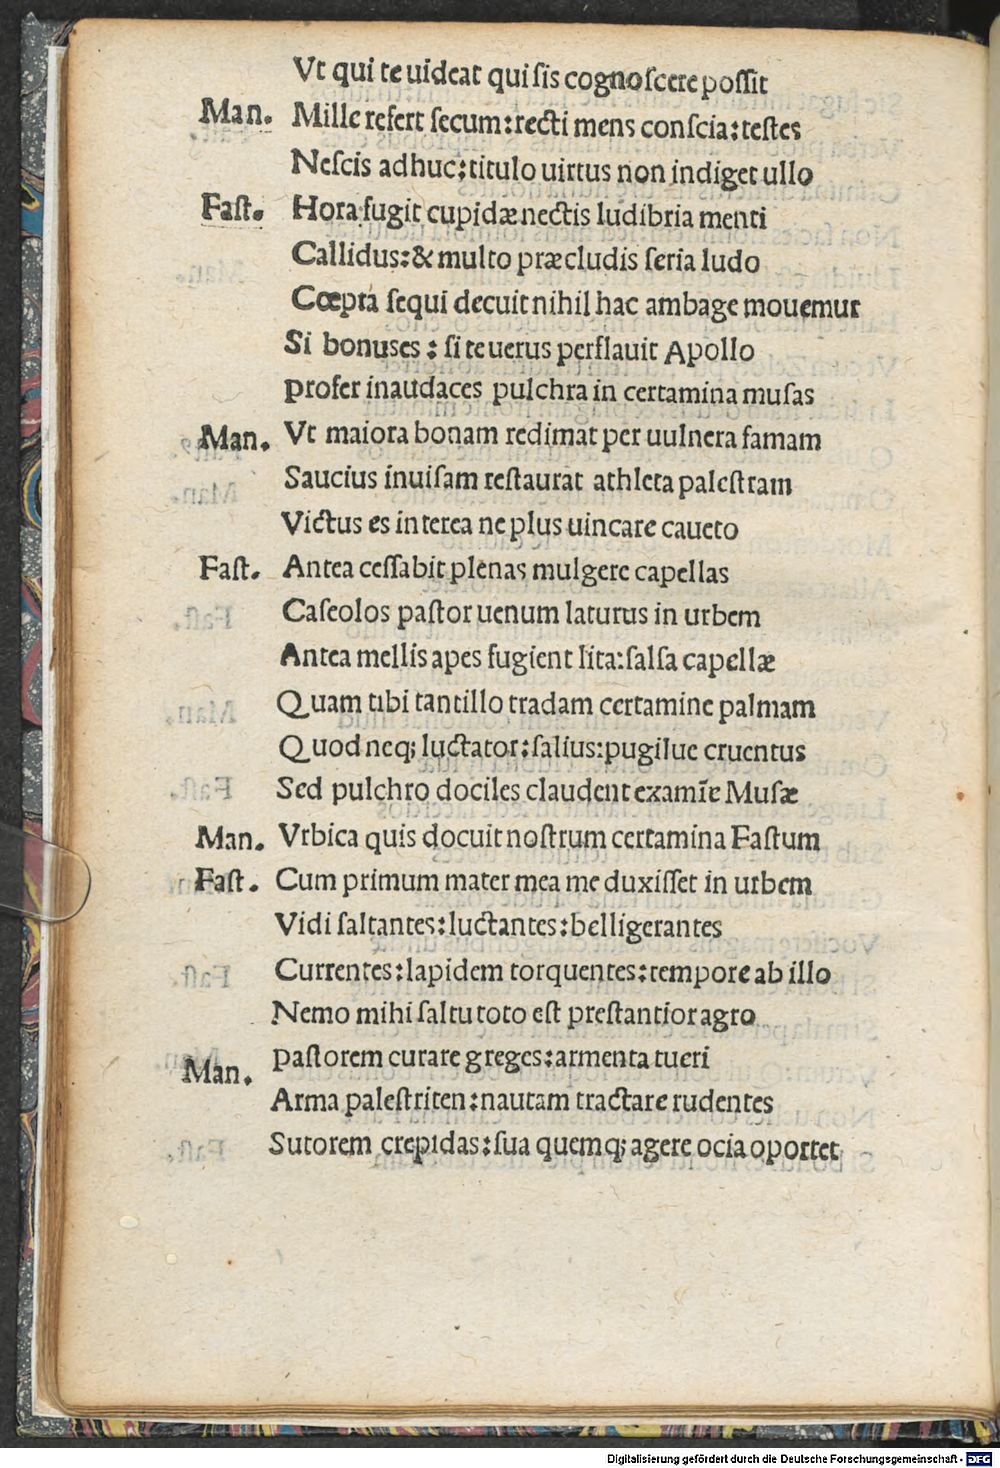 Vt qui te uideat qui sis cognoscere possit
Man. Mille refert secum: recti mens conscia: testes
Nescis adhuc; titulo uirtus non indiget ullo
Fast. Hora fugit cupidæ nectis ludibria menti
Callidus: & multo præcludis seria ludo
Cœpta sequi decuit nihil hac ambage mouemur
Si bonus es: si te uerus perflauit Apollo
profer in audaces pulchra in certamina musas
Man. Vt maiora bonam redimat per uulnera famam
Saucius inuisam restaurat athleta palestram
Victus es interea ne plus uincare caueto
Fast. Antea cessabit plenas mulgere capellas
Caseolos pastor uenum laturus in urbem
Antea mellis apes fugient lita: salsa capellæ
Quam tibi tantillo tradam certamine palmam
Quod neq; luctator: salius: pugilue cruentus
Sed pulchro dociles claudent examīe Musæ
Man. Vrbica quis docuit nostrum certamina Fastum
Fast. Cum primum mater mea me duxisset in urbem
Vidi saltantes: luctantes: belligerantes
Currentes: lapidem torquentes: tempore ab illo
Nemo mihi saltu toto est prestantior agro
Man. pastorem curare greges: armenta tueri
Arma palestriten: nautam tractare rudentes
Sutorem crepidas: sua quemq; agere ocia oportet
Digitalisierung gefördert durch die Deutsche Forschungsgemeinschaft - DFG